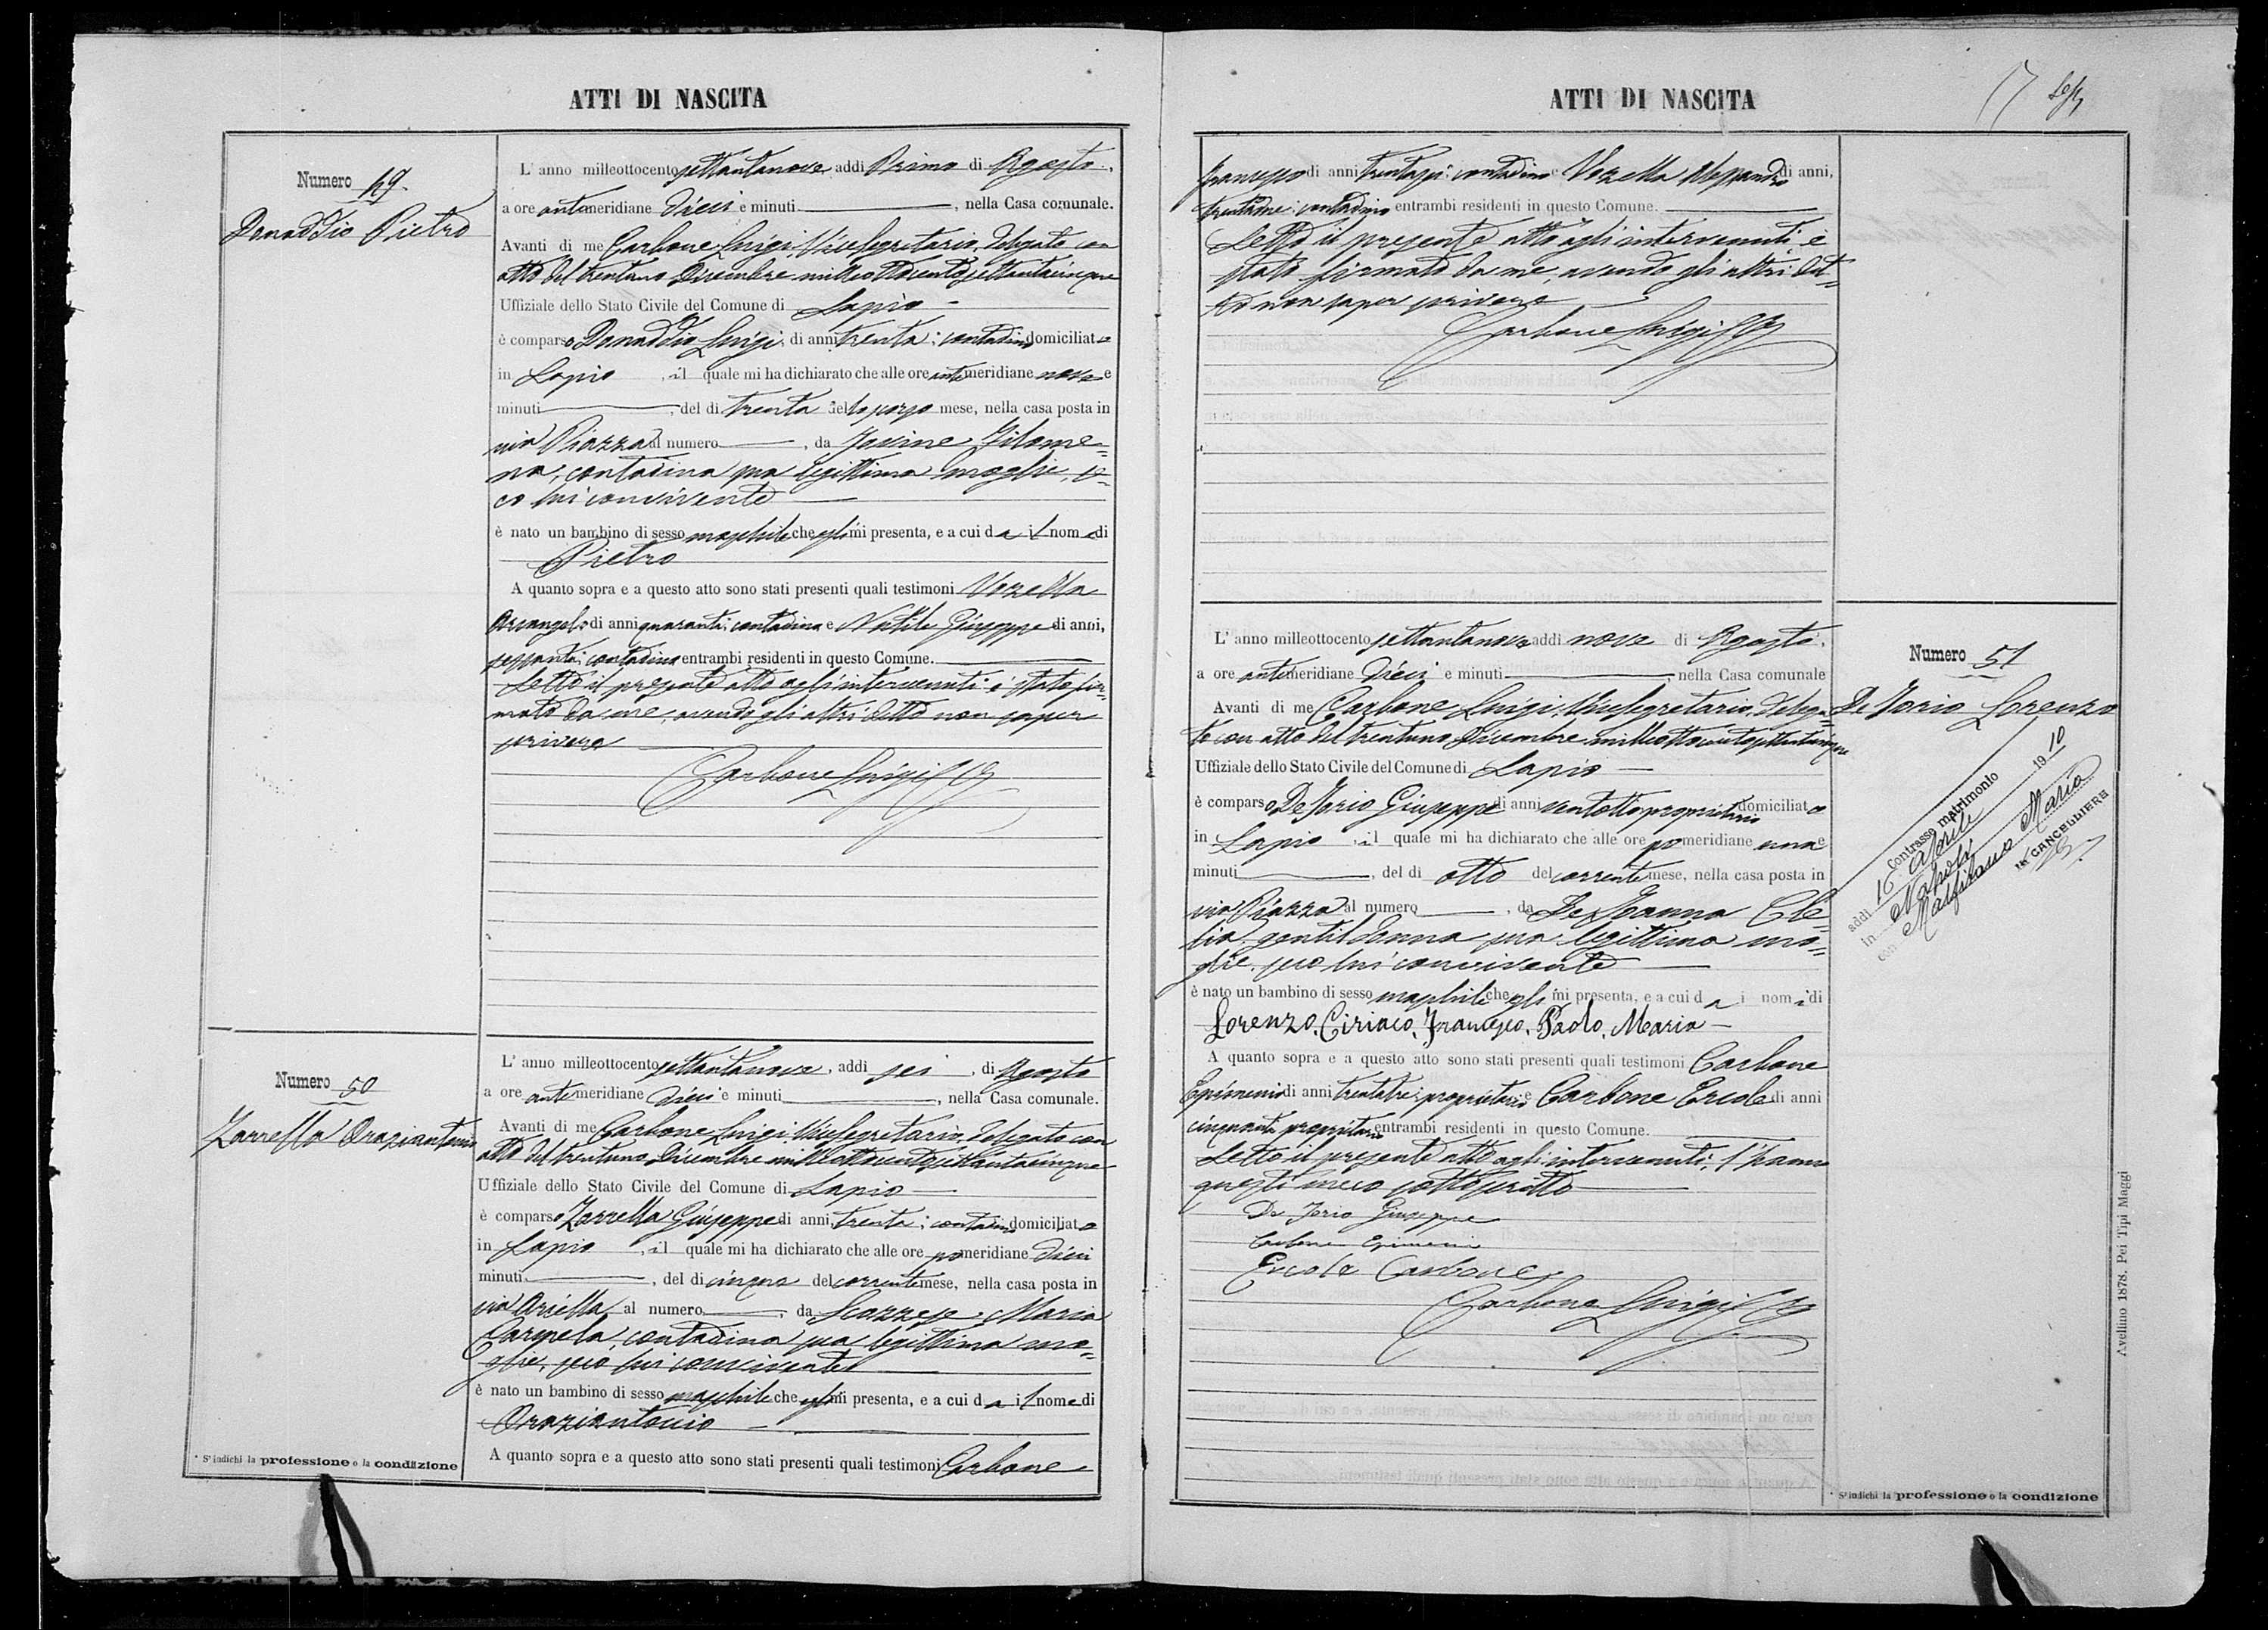 ATTI DI NASCITA
Numero 49.
Donaddio Pietro
L'anno milleottocento settantanove addì Primo di Agosto,
a ore antemeridiane dieci e minuti , nella Casa comunale.
Avanti di me Carbone Luigi, Vicesegretario, delegato con
atto del trentuno Dicembre milleottocentosettantacinque
Uffiziale dello Stato Civile del Comune di Lapio
è comparso Donaddio Luigi, di anni trenta; contadino domiciliato
in Lapio , il quale mi ha dichiarato che alle ore antemeridiane nove e
minuti , del dì trenta dello scorso mese, nella casa posta in
via Piazza al numero , da Jovine Filome=
na, contadina sua legittima moglie, se=
co lui convivente
è nato un bambino di sesso maschile che egli mi presenta, e a cui dà il nome di
Pietro
A quanto sopra e a questo atto sono stati presenti quali testimoni Vozella
Arcangelo di anni quaranta; contadino e Giuseppe di anni,
sessanta; contadino entrambi residenti in questo Comune.
Letto il presente atto agli intervenuti è stato fir=
mato da me, avendo gli altri detto non saper
scrivere
Carbone Luigi
Numero 50
Zarrella Oraziantonio
L'anno milleottocento settantanove, addì sei , di Agosto
a ore antemeridiane dieci e minuti , nella Casa comunale.
Avanti di me Carbone Luigi Vicesegretario, delegato con
atto del trentuno Dicembre milleottocentosettantacinque
Uffiziale dello Stato Civile del Comune di Lapio
è comparso Zarrella Giuseppe di anni, trenta; contadino domiciliato
in Lapio , il quale mi ha dichiarato che alle ore pomeridiane dieci
minuti , del dì cinque del corrente mese, nella casa posta in
via Ariella al numero , da Maria
Carmela, contadina sua legittima mo=
glie, seco lui convivente
è nato un bambino di sesso maschile che egli mi presenta, e a cui dà il nome di
Oraziantonio
A quanto sopra e a questo atto sono stati presenti quali testimoni Carbone
* S'indichi la professione o la condizione
ATTI DI NASCITA
17
Francesco di anni trentasei; contadino e Vozella di anni,
contadino entrambi residenti in questo Comune.
Letto il presente atto agli intervenuti è
stato firmato da me, avendo gli altri det=
to non saper scrivere
Carbone Luigi
L'anno milleottocento settantanove addì nove di Agosto,
a ore antemeridiane dieci e minuti , nella Casa comunale
Avanti di me Carbone Luigi, Vicesegretario, delega=
to con atto del trentuno Dicembre milleottocentosettantacinque
Uffiziale dello Stato Civile del Comune di Lapio
è comparso De Jorio Giuseppe di anni ventotto proprietario domiciliato
in Lapio , il quale mi ha dichiarato che alle ore pomeridiane una e
minuti , del dì otto del corrente mese, nella casa posta in
via Piazza al numero , da De Joanna Cle=
lia, gentildonna sua legittima mo=
glie, seco lui convivente
è nato un bambino di sesso maschile che egli mi presenta, e a cui dà i nomi di
Lorenzo, Ciriaco, Francesco, Paolo, Maria
A quanto sopra e a questo atto sono stati presenti quali testimoni Carbone
Epimenio di anni trentatre; proprietario e Carbone Ercole di anni
cinquanta proprietario entrambi residenti in questo Comune.
Letto il presente atto agli intervenuti, l'hanno
questi meco sottoscritto
De Jorio Giuseppe
Carbone Epimenio
Ercole Carbone
Carbone Luigi
Numero 51
De Jorio Lorenzo
Contrasse matrimonio
addì 16 Aprile 1910
in Napoli
con Maria
IL CANCELLIERE
Avellino 1878. Pei Tipi Maggi
* S'indichi la professione o la condizione